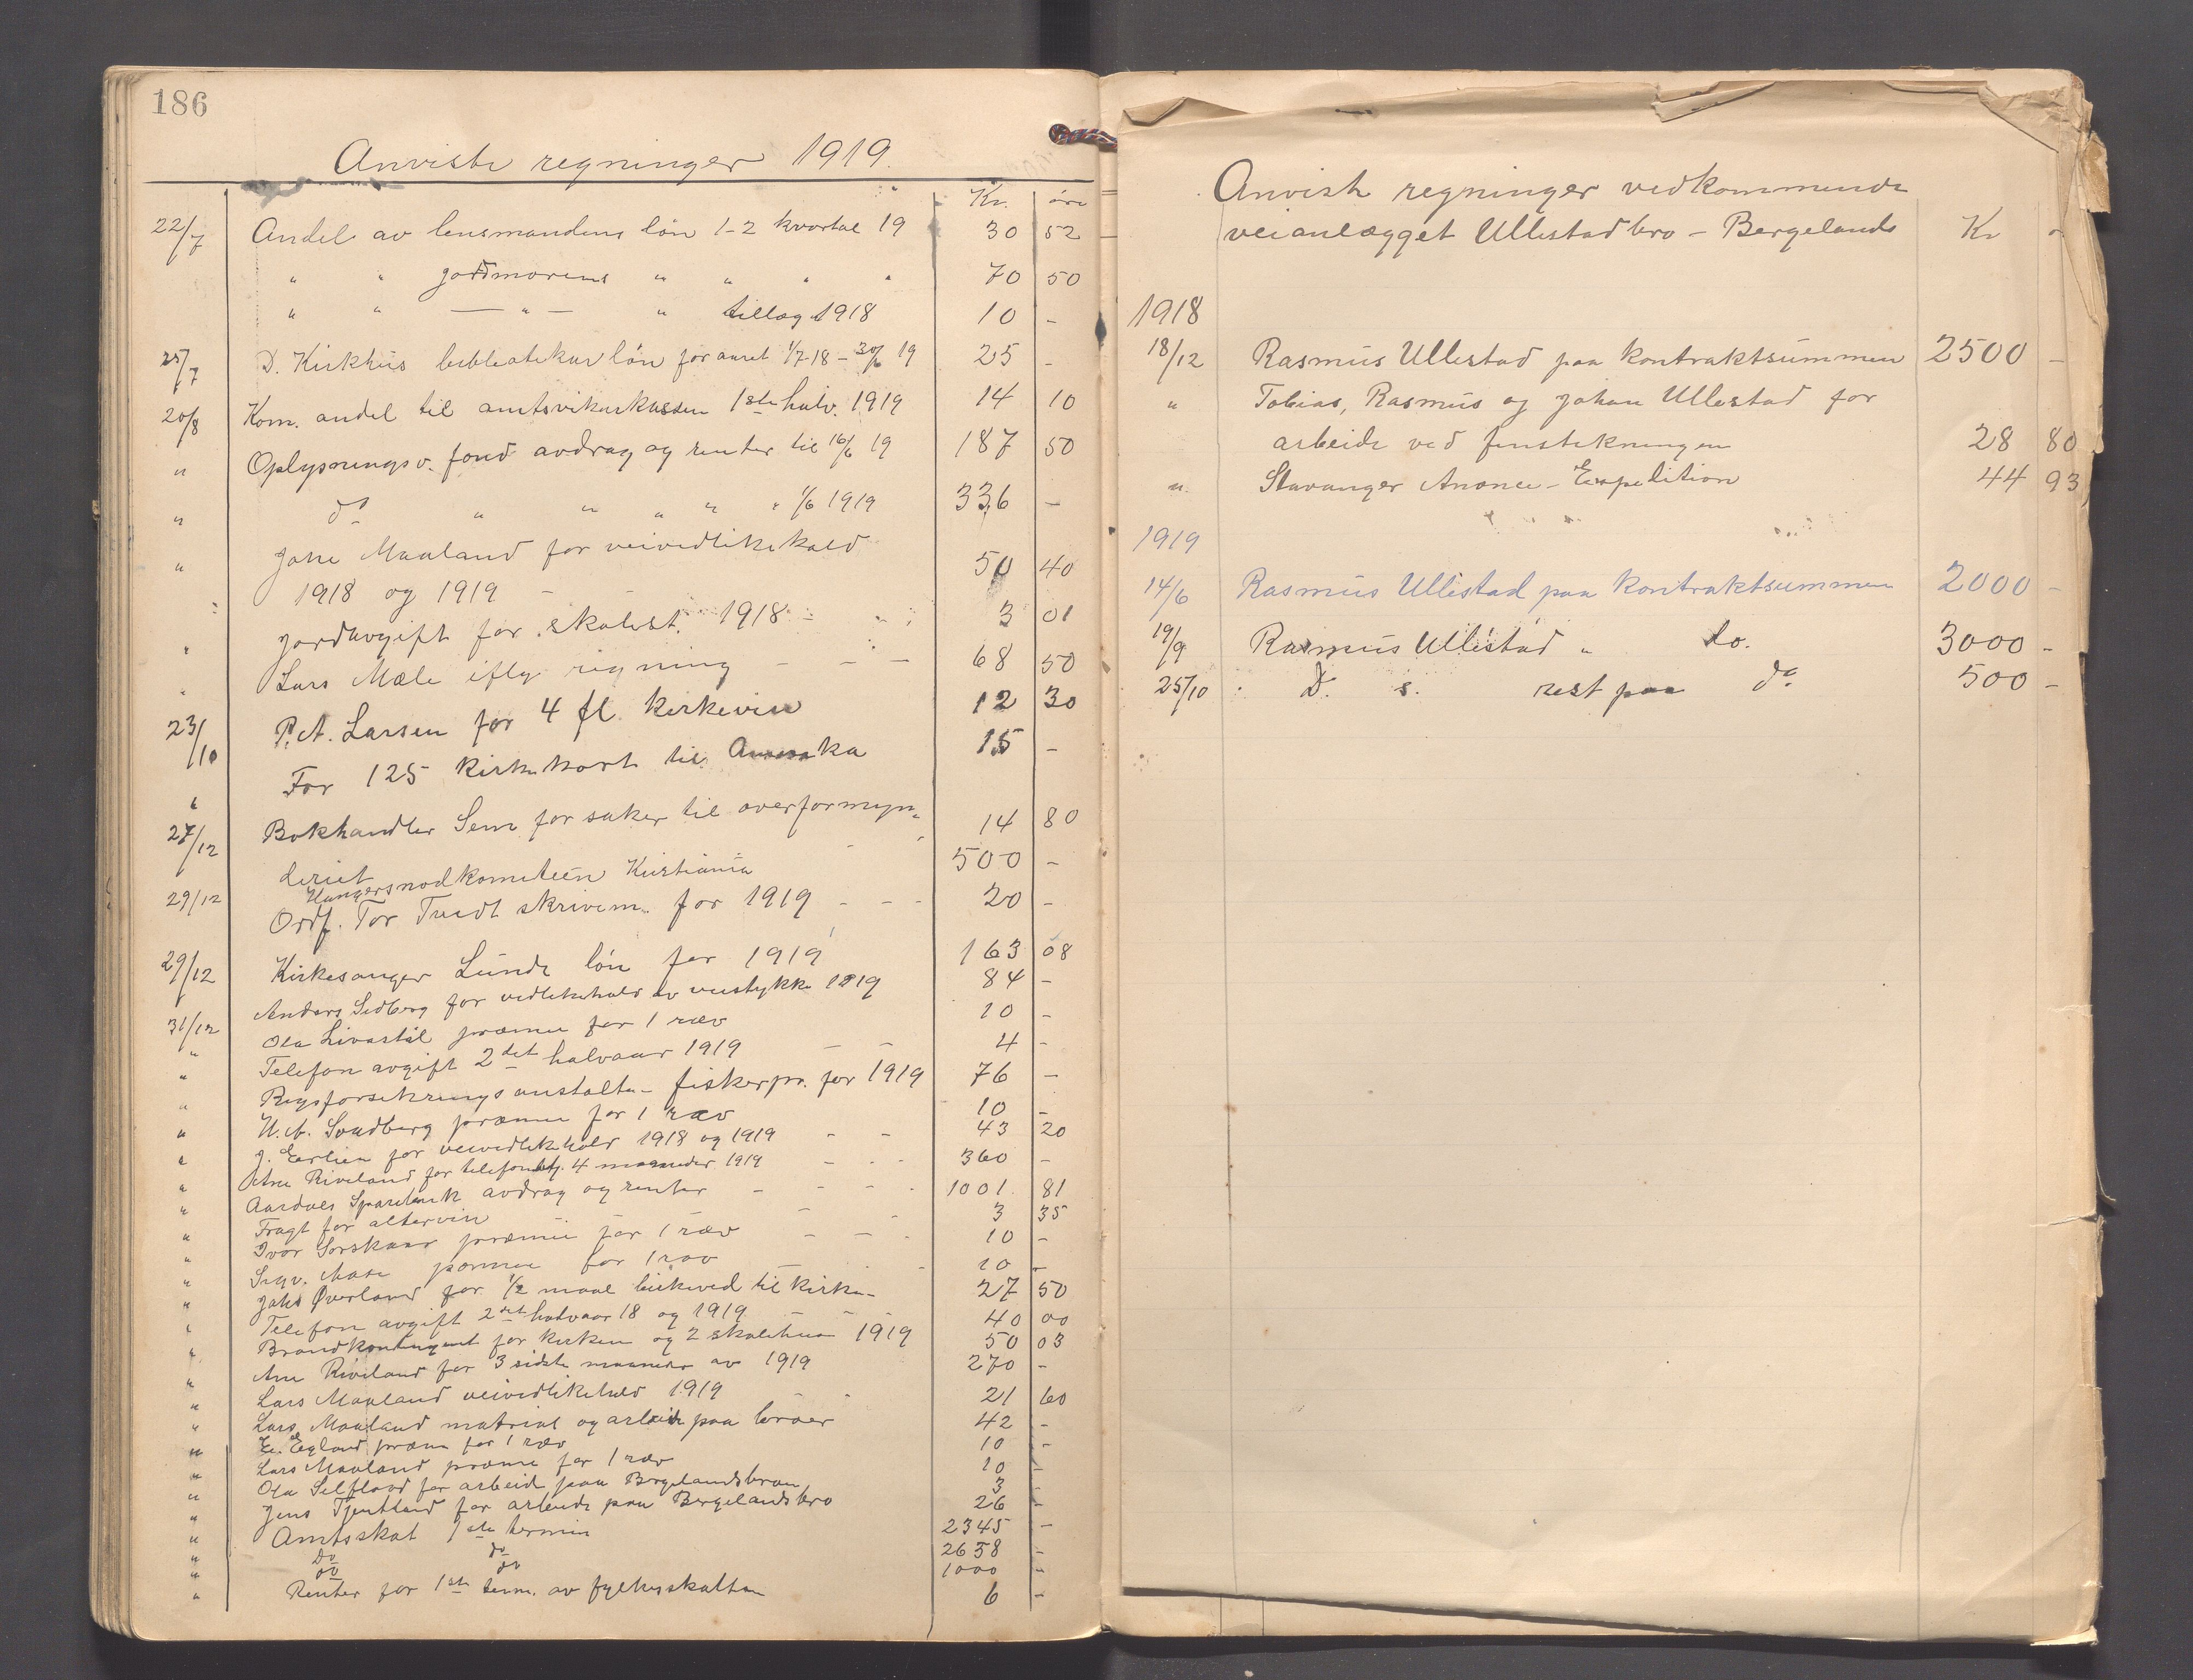 186
Anviste regninger 1919.
Kr. øre
22/7 Andel av lensmandens løn 1-2 kvartal 19 30 52
" " jordmorens " " " " 70 50
" " — " — " tillæg 1918 10 -
25/7 D. Kirkhus løn for aaret 1/7-18 - 30/6 19 25 -
20/8 Kom. andel til amtsvikarkassen 1ste halv. 1919 14 10
" Oplysningsv. fond avdrag og renter til 16/6 19 187 50
" do " " " " " 1/6 1919 336 -
" Maaland for veivedlikehold
1918 og 1919 - 50 40
" Jordavgift for skolest. 1918 - " 3 01
" Lars Mæle iflg regning - - - 68 50
23/10 P. A. Larsen for 4 fl. kirkevin 12 30
" For 125 kirkekort til Amerika 15 -
27/12 Bokhandler Sem for saker til overformyn-
deriet 14 80
Hungersnødkomiteen Kristiania 500 -
29/12 Ordf. Tor Tveidt skrivem. for 1919 - - - 20 -
29/12 Kirkesanger Lunde løn for 1919 163 08
Anders Sedberg for vedlikehold av veistykke 1919 84 -
31/12 Ola Livastøl præmie for 1 ræv 10 -
" Telefon avgift 2det halvaar 1919 - - 4 -
" Rigsforsikringsanstalten - fiskerpr. for 1919 76 -
" præmie for 1 ræv 10 -
" J. for veivedlikehold 1918 og 1919 - - 43 20
" Ane Riveland for telefonbetj. 4 maaneder 1919 - - - 360 -
" Aardals Sparebank avdrag og renter - - - - 1001 81
" Fragt for altervin - - 3 35
" Ivar Sørskaar præmie for 1 ræv - - - 10 -
" Sigv. præmie for 1 ræv - - 10 -
" Johs Øverland for 1/2 maal birkeved til kirken 27 50
" Telefon avgift 2det halvaar 18 og 1919 - - - 40 00
" Brandkontingent for kirken og 2 skolehus 1919 50 03
" Ane Riveland for 3 sidste maaneder av 1919 270 -
" Lars Maaland veivedlikehold 1919 - - 21 60
" Lars Maaland matrial og arbeide paa broer 42 -
" E. Egland præmie for 1 ræv 10 -
" Lars Maaland præmie for 1 ræv 10 -
" Ola for arbeide paa Bergelandsbroen 3 -
" Jens Tjentland for arbeide paa Bergelandsbro 26 -
" Amtsskat 1ste termin 2345 -
" Do do 2658 -
" do do 1000 -
" Renter for 1ste term. av fylkesskatten 6 -
Anviste regninger vedkommende
veianlægget Ullestadbro - Bergelands Kr
1918
18/12 Rasmus Ullestad paa kontraktsummen 2500 -
" Tobias, Rasmus og Johan Ullestad for
arbeide ved 28 80
" Stavanger Anonce-Expedition 44 93
1919
14/6 Rasmus Ullestad paa kontraktsummen 2000 -
19/9 Rasmus Ullestad " do. 3000 -
25/10 D. s. rest paa do 500 -